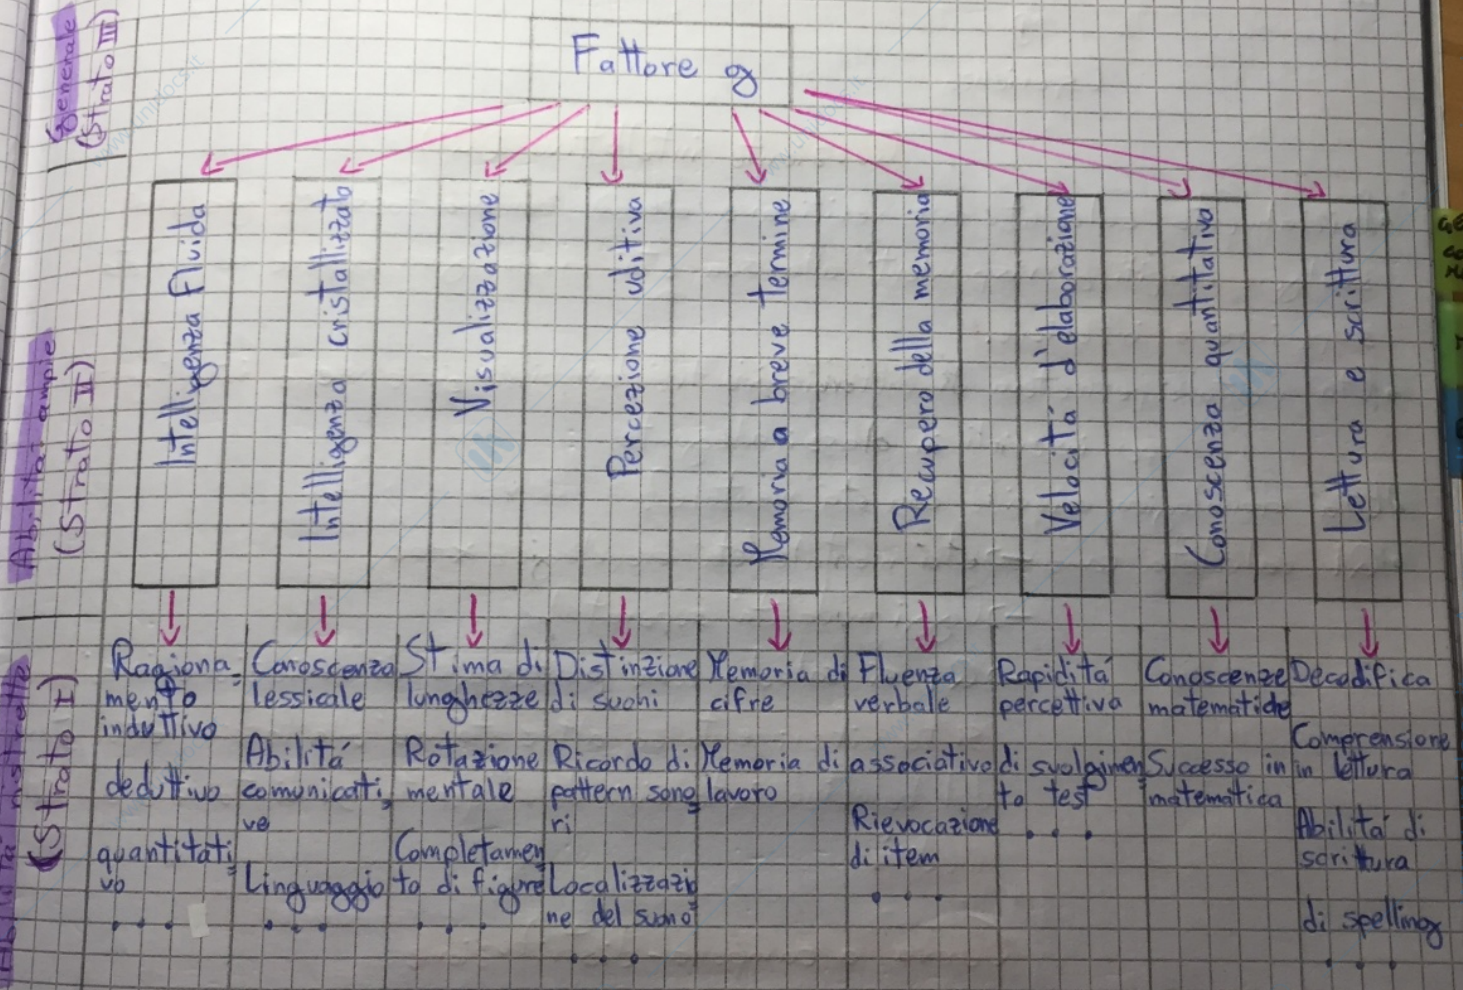 Generale
(Strato III)
Fattore g
Abilità ampie
(Strato II)
Intelligenza Fluida
Intelligenza cristallizzata
Visualizzazione
Percezione uditiva
Memoria a breve termine
Recupero della memoria
Velocitá d'elaborazione
Conoscenza quantitativa
Lettura e scrittura
Abilità ristrette
(Strato I)
Ragiona=
mento
induttivo
deduttivo
quantitati=
vo
. . .
Conoscenza
lessicale
Abilitá
comunicati=
ve
Linguaggio
. . .
Stima di
lunghezze
Rotazione
mentale
Completamen
to di figure
. . .
Distinzione
di suoni
Ricordo di
pattern sono
ri
Localizzazio
ne del suono
. . .
Memoria di
cifre
Memoria di
lavoro
Fluenza
verbale
associativo
Rievocazione
di item
. . .
Rapiditá
percettiva
di svolgimen
to test
. . .
Conoscenze
matematiche
Successo in
matematica
Decodifica
Comprensione
in lettura
Abilitá di
scrittura
di spelling
. . .
www.unidocs.it